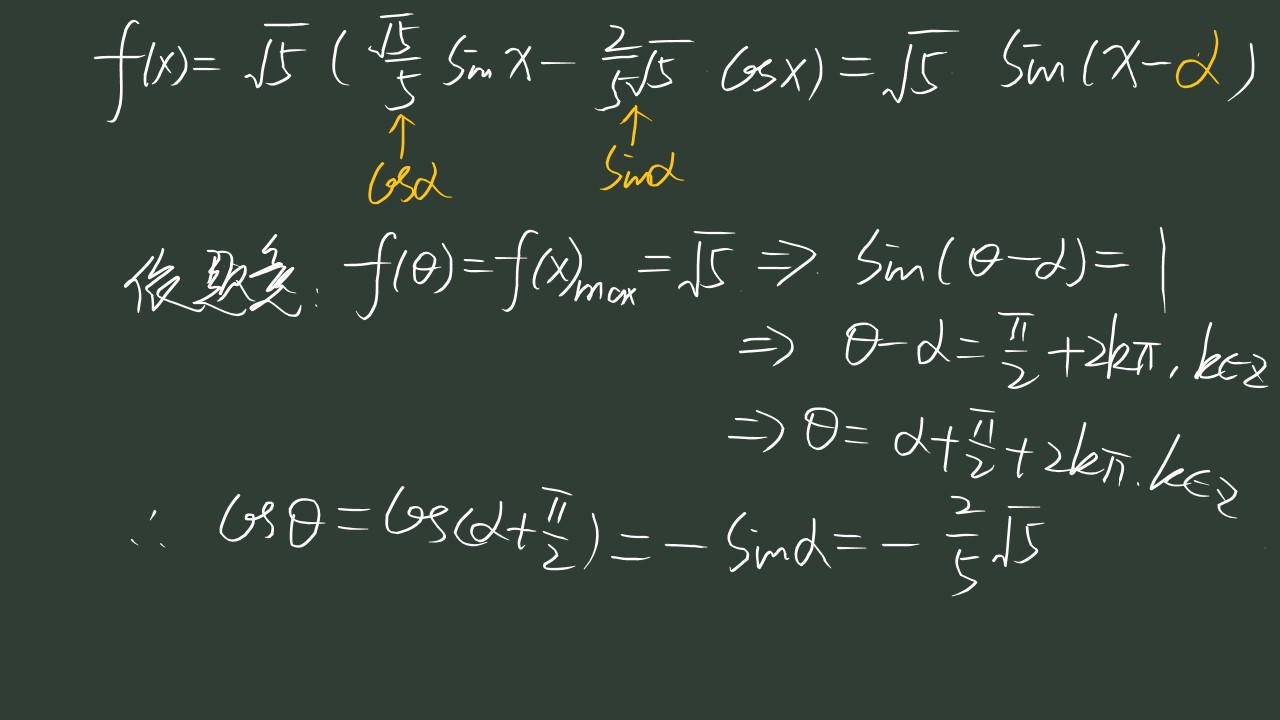 f(x)=√5(√5/5 sinx-2/5√5 cosx)=√5 sin(x-α)
↑ ↑
cosα sinα
依题意: f(θ)=f(x)max=√5 ⇒ sin(θ-α)=1
⇒ θ-α=π/2+2kπ, k∈Z
⇒ θ=α+π/2+2kπ.k∈Z
∴ cosθ=cos(α+π/2)=-sinα=-2/5√5